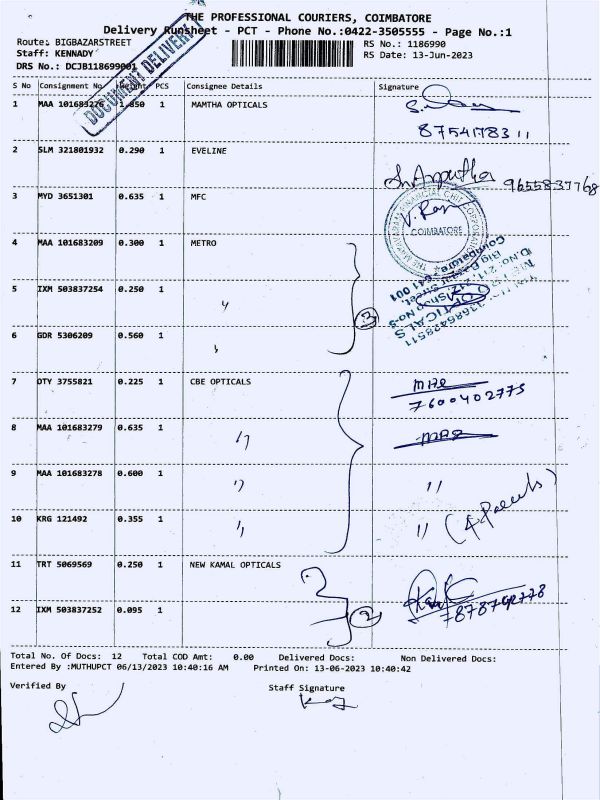 THE PROFESSIONAL COURIERS, COIMBATORE
Delivery Runsheet - PCT - Phone No.:0422-3505555 - Page No.:1
Route: BIGBAZARSTREET
RS No.: 1186990
Staff: KENNADY
RS Date: 13-Jun-2023
DRS No.: DCJB118699001
DOCUMENT DELIVERY
S No Consignment No Weight PCS Consignee Details Signature
1 MAA 101683276 1.850 1 MAMTHA OPTICALS
87541783 11
2 SLM 321801932 0.290 1 EVELINE
9655837768
3 MYD 3651301 0.635 1 MFC
V. Ran
COIMBATORE
4 MAA 101683209 0.300 1 METRO
Coimbatore 641 001
OPTICALS
5 IXM 503837254 0.250 1 "
3
6 GDR 5306209 0.560 1 "
7 OTY 3755821 0.225 1 CBE OPTICALS
7600402775
8 MAA 101683279 0.635 1 "
9 MAA 101683278 0.600 1 " "
10 KRG 121492 0.355 1 " "
11 TRT 5069569 0.250 1 NEW KAMAL OPTICALS
12 IXM 503837252 0.095 1
2
Total No. Of Docs: 12 Total COD Amt: 0.00 Delivered Docs: Non Delivered Docs:
Entered By :MUTHUPCT 06/13/2023 10:40:16 AM Printed On: 13-06-2023 10:40:42
Verified By Staff Signature